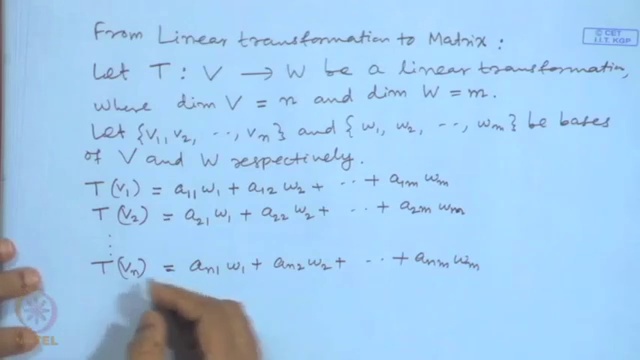 © CET
I.I.T. KGP
From Linear transformation to Matrix :
Let T : V → W be a linear transformation,
where dim V = n and dim W = m.
Let {v₁, v₂, ‥, vₙ} and {w₁, w₂, ‥, wₘ} be bases
of V and W respectively.
T(v₁) = a₁₁ w₁ + a₁₂ w₂ + ‥ + a₁ₘ wₘ
T(v₂) = a₂₁ w₁ + a₂₂ w₂ + ‥ + a₂ₘ wₘ
⋮
T(vₙ) = aₙ₁ w₁ + aₙ₂ w₂ + ‥ + aₙₘ wₘ